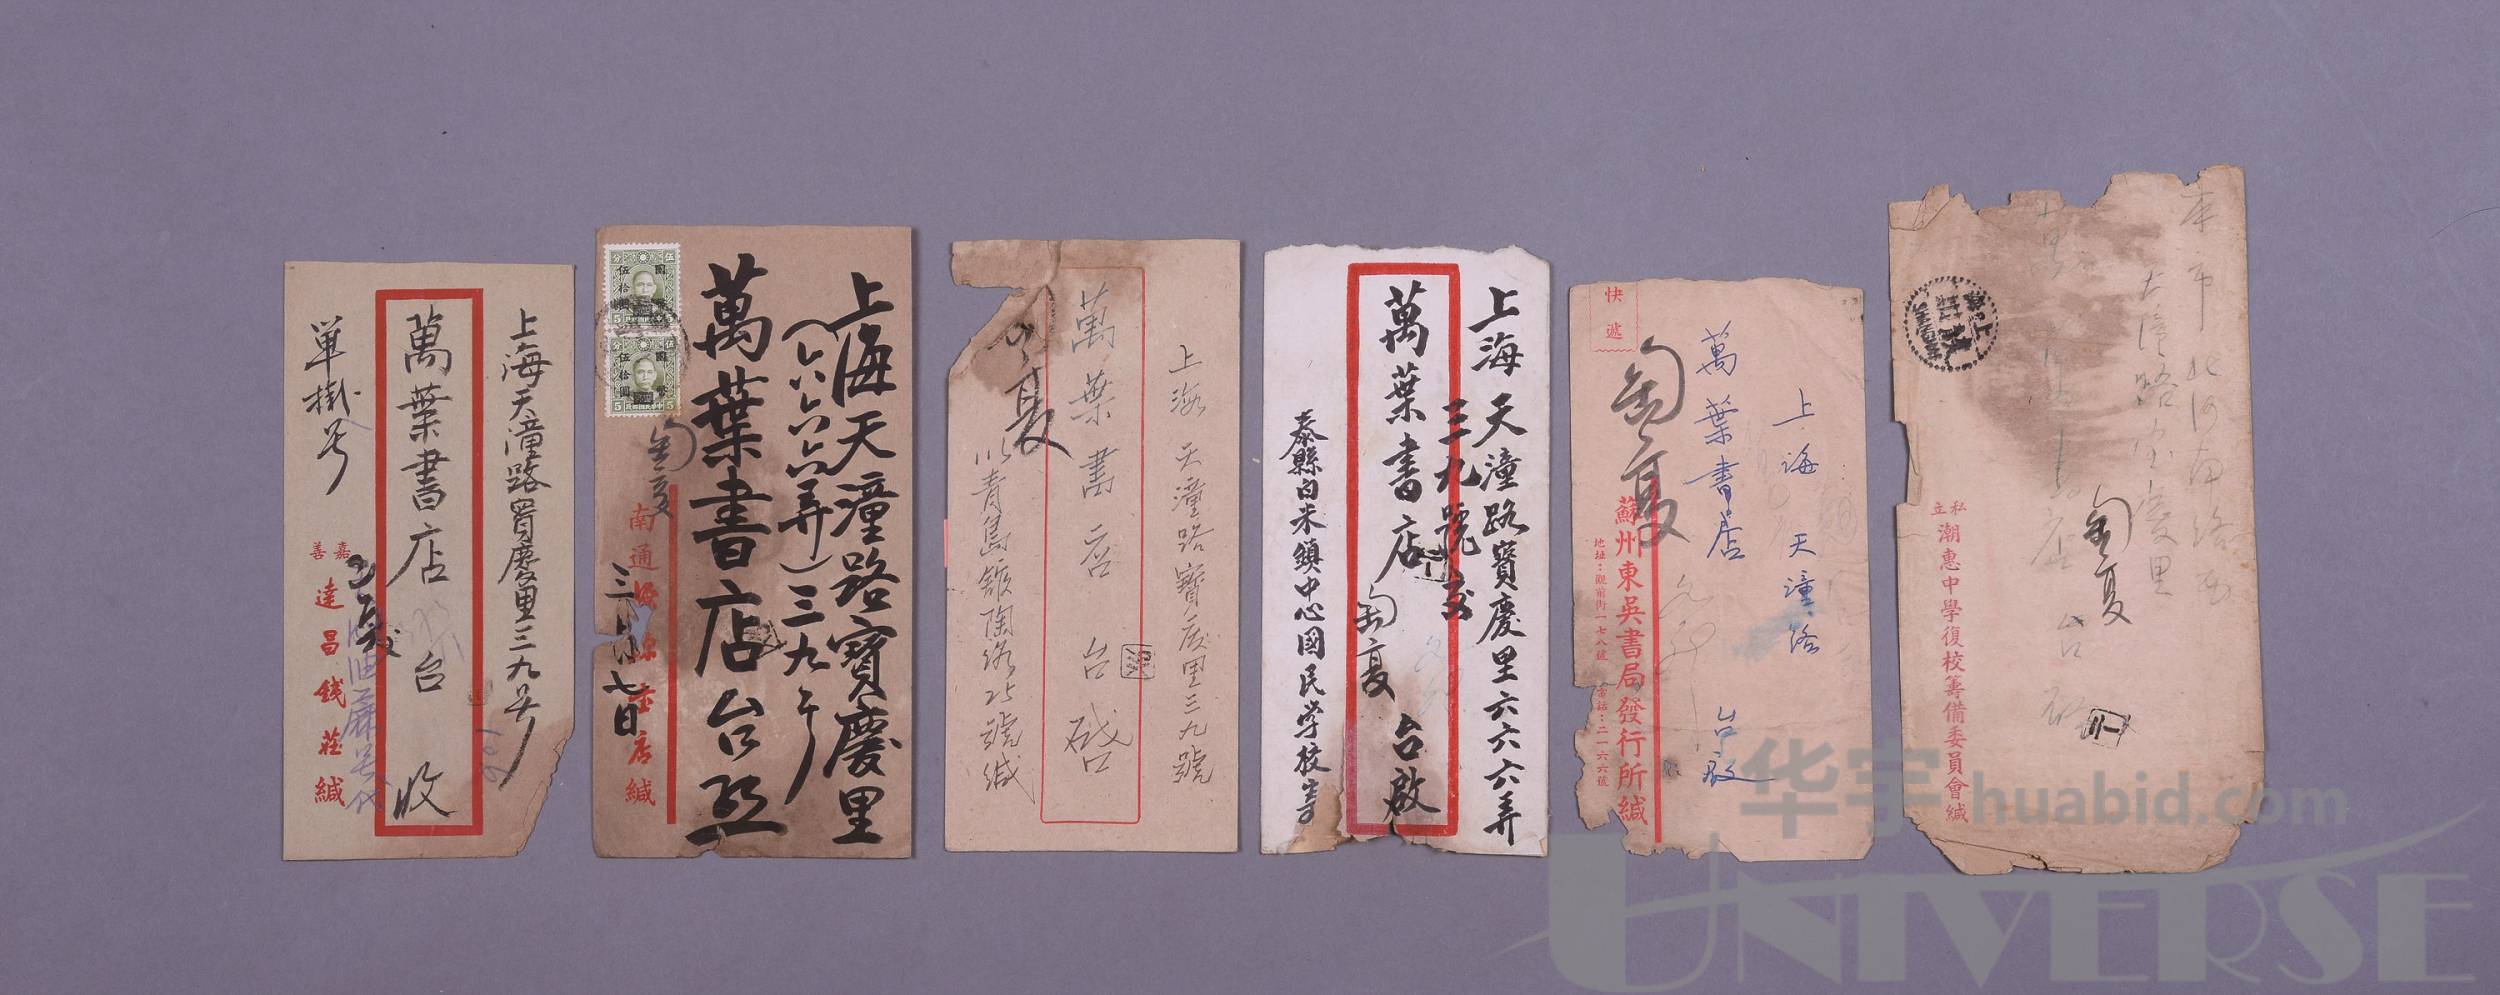 上海天潼路寶慶里三九号
萬葉書店台收
单掛号
嘉善
達昌錢莊緘
上海天潼路寶慶里
(六六六弄)三九号
萬葉書店台啟
伍分
國幣
伍拾圓
5
伍分
國幣
伍拾圓
5
南通
書店緘
三月七日
上海天潼路寶慶里三九號
萬葉書店台啟
青島館陶路25號緘
夏
上海天潼路寶慶里六六六弄
三九號
萬葉書店台啟
泰縣白米鎮中心國民学校寄
夏
快遞
上海天潼路
萬葉書店台啟
蘇州東吳書局發行所緘
地址:觀前街一七八號 電話:二一六六號
夏
本市北河南路
天潼路寶慶里
店台啟
夏
上海
私立潮惠中學復校籌備委員會緘
华宇 huabid.com
UNIVERSE